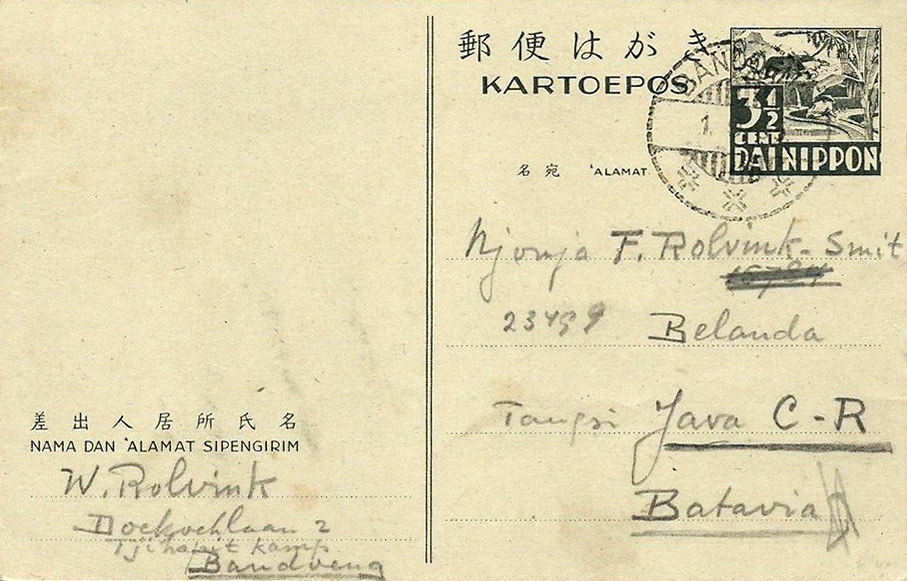 郵便はがき
KARTOEPOS
BANDOENG
3 1/2
CENT
DAI NIPPON
名宛 'ALAMAT
Njonja F. Rolvink-Smit
Belanda
Tangsi Java C-R
Batavia
差出人居所氏名
NAMA DAN 'ALAMAT SIPENGIRIM
W. Rolvink
2
Tjihapit Kamp
Bandoeng